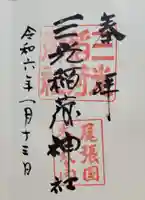 奉拝
三光稲荷神社
令和六年一月十三日
尾張国